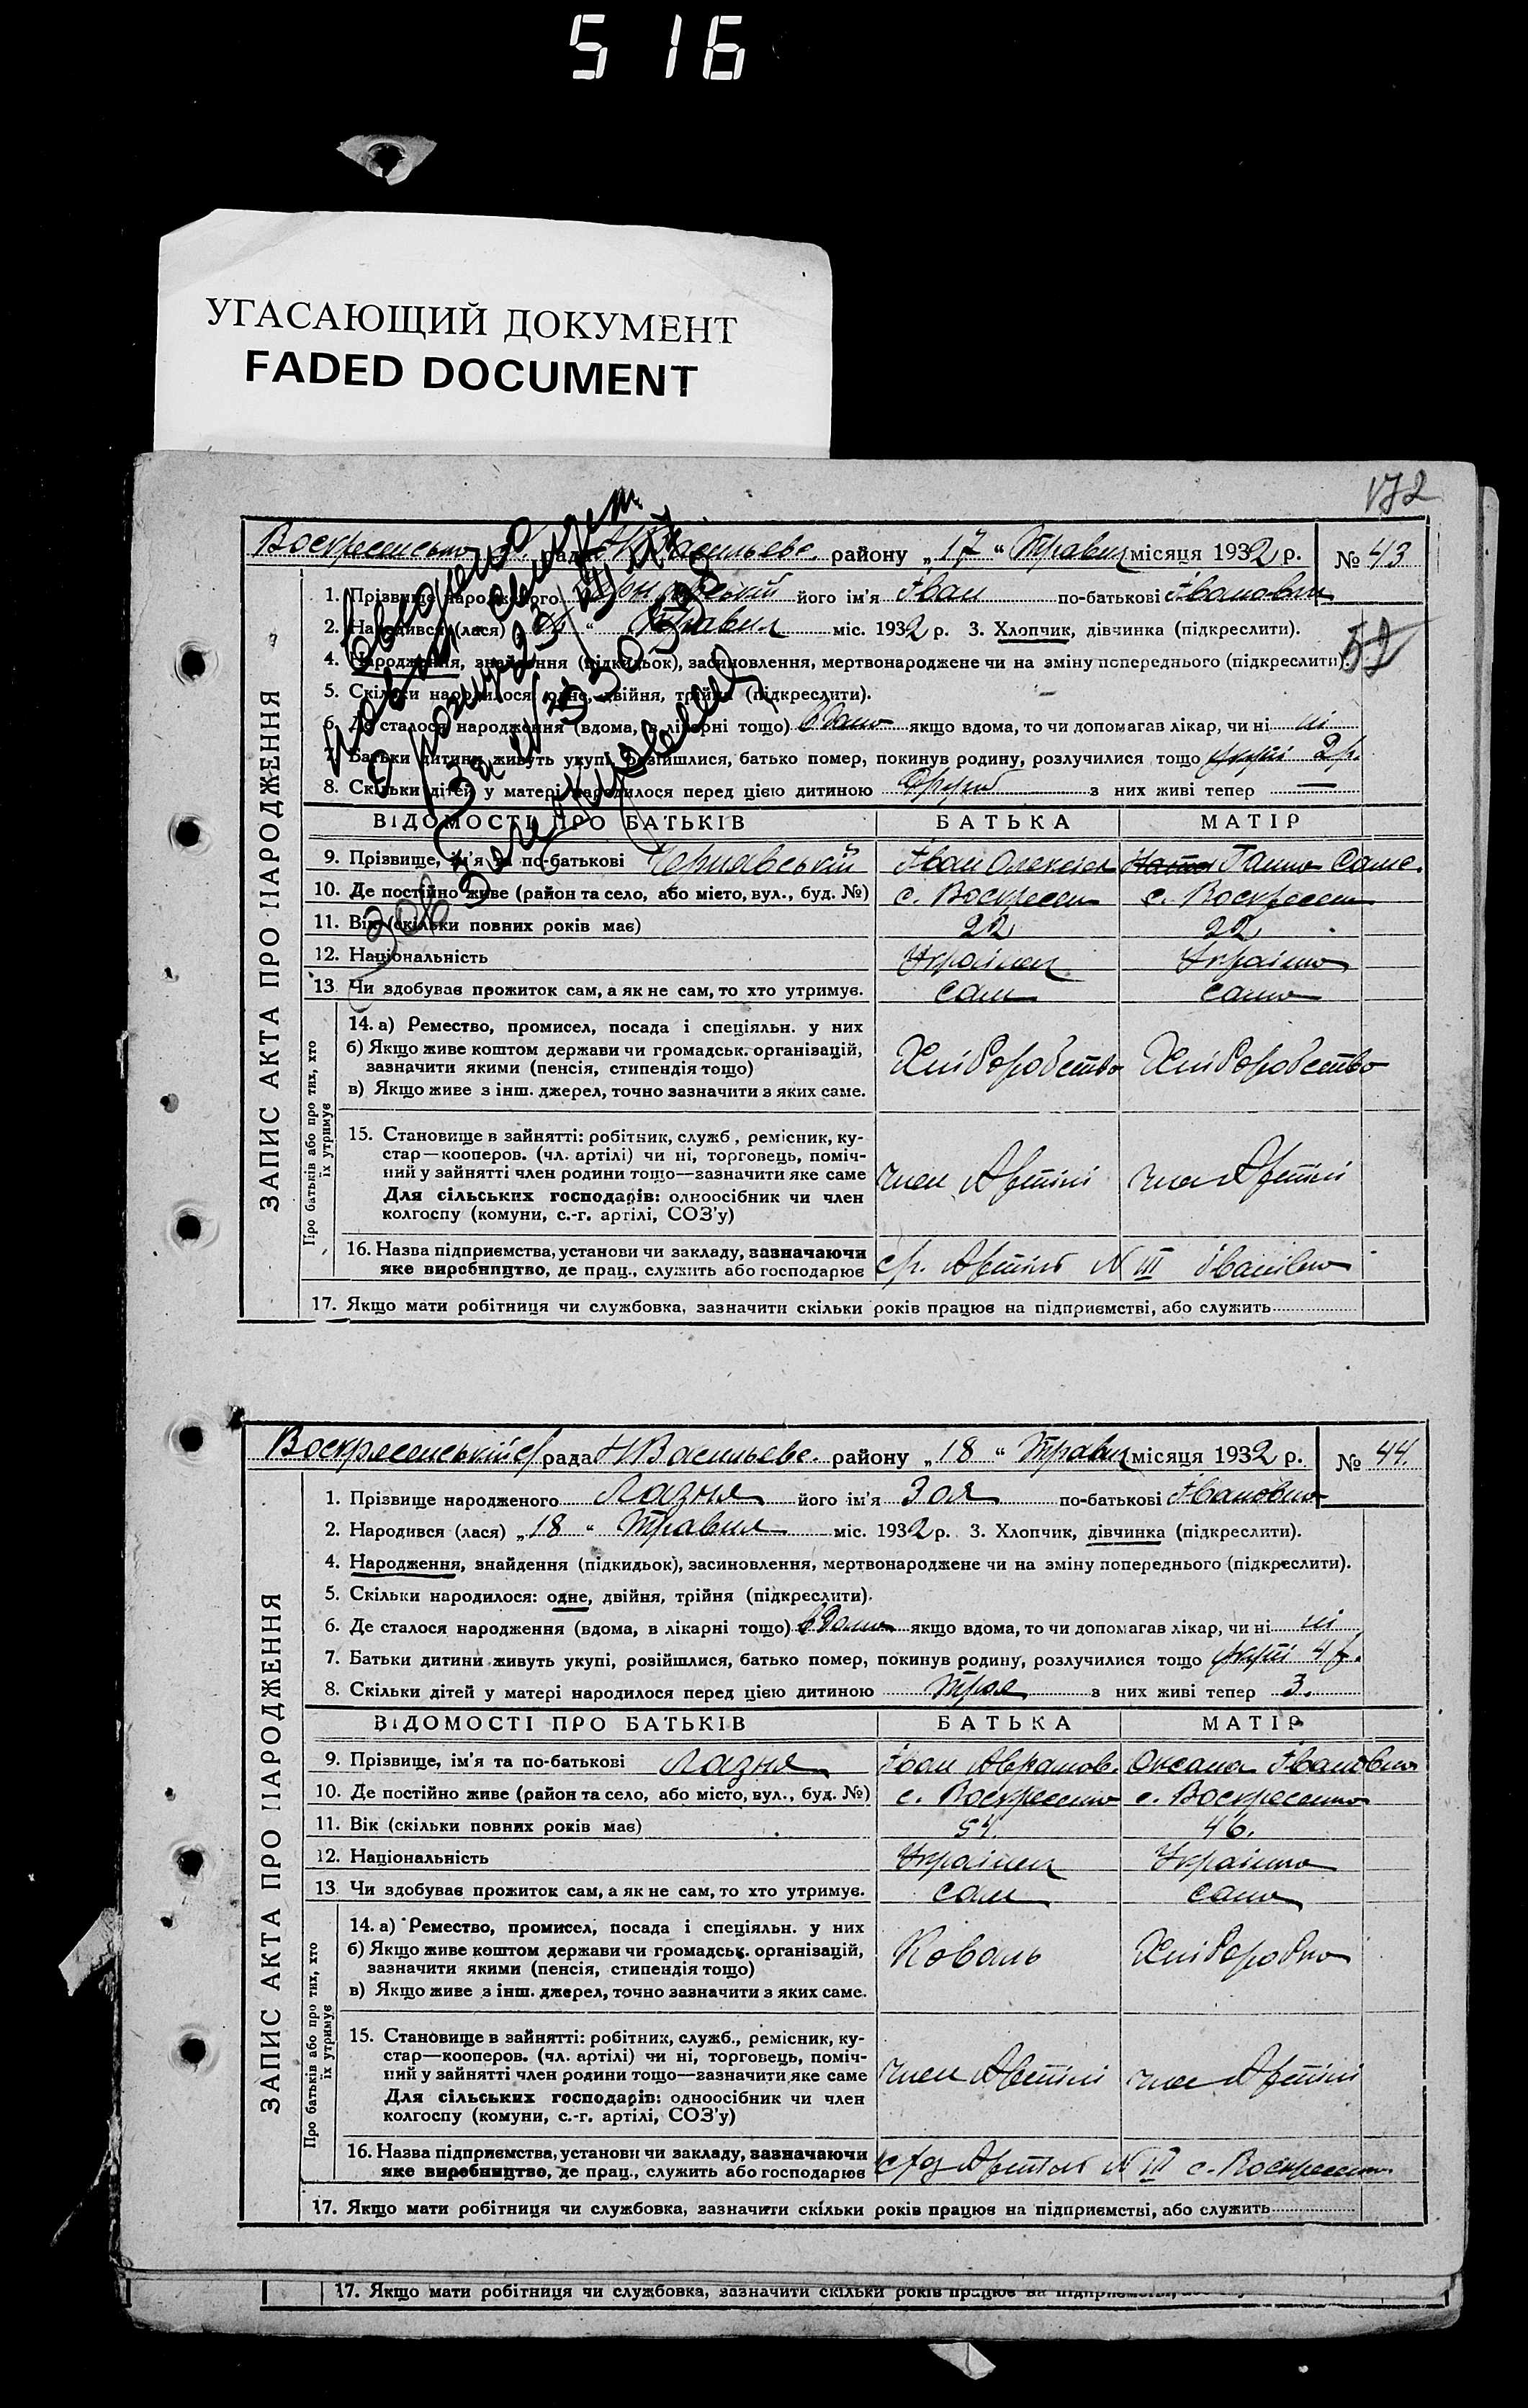 516
УГАСАЮЩИЙ ДОКУМЕНТ
FADED DOCUMENT
172
рада Н Васильевс. району „17“ Травня місяця 1932 р. № 43
ЗАПИС АКТА ПРО НАРОДЖЕННЯ
1. Прізвище народженого його ім'я Іван по-батькові Іванович
2. Народився (лася) “ Травня міс. 1932 р. 3. Хлопчик, дівчинка (підкреслити).
52
4. Народження, знайдення (підкидьок), засиновлення, мертвонароджене чи на зміну попереднього (підкреслити).
5. Скільки народилося: одне, двійня, трійня (підкреслити).
6. Де сталося народження (вдома, в лікарні тощо) вдома якщо вдома, то чи допомагав лікар, чи ні ні
7. Батьки дитини живуть укупі, розійшлися, батько помер, покинув родину, розлучилися тощо укупі 2 р.
8. Скільки дітей у матері народилося перед цією дитиною з них живі тепер —
ВІДОМОСТІ ПРО БАТЬКІВ БАТЬКА МАТІР
9. Прізвище, ім'я та по-батькові Чернявський Іван Ганна
10. Де постійно живе (район та село, або місто, вул., буд. №) с. Воскресен с. Воскресен
11. Вік (скільки повних років має) 22 22
12. Національність Українец Українка
13. Чи здобуває прожиток сам, а як не сам, то хто утримує. сам сама
Про батьків або про тих, хто їх утримує
14. а) Ремество, промисел, посада і спеціяльн. у них
б) Якщо живе коштом держави чи громадськ. організацій,
зазначити якими (пенсія, стипендія тощо)
Хліборобство Хліборобство
в) Якщо живе з інш. джерел, точно зазначити з яких саме.
15. Становище в зайнятті: робітник, служб, ремісник, ку-
стар—кооперов. (чл. артілі) чи ні, торговець, поміч-
ний у зайнятті член родини тощо—зазначити яке саме
член Артілі член Артілі
Для сільських господарів: одноосібник чи член
колгоспу (комуни, с.-г. артілі, СОЗ'у)
16. Назва підприємства, установи чи закладу, зазначаючи
яке виробництво, де прац., служить або господарює Артіль N III
17. Якщо мати робітниця чи службовка, зазначити скільки років працює на підприємстві, або служить
Воскресенський рада Н Васильевс. району „18“ Травня місяця 1932 р. № 44.
ЗАПИС АКТА ПРО НАРОДЖЕННЯ
1. Прізвище народженого Лазня його ім'я Зоя по-батькові Івановна
2. Народився (лася) „18“ Травня міс. 1932 р. 3. Хлопчик, дівчинка (підкреслити).
4. Народження, знайдення (підкидьок), засиновлення, мертвонароджене чи на зміну попереднього (підкреслити).
5. Скільки народилося: одне, двійня, трійня (підкреслити).
6. Де сталося народження (вдома, в лікарні тощо) вдома якщо вдома, то чи допомагав лікар, чи ні ні
7. Батьки дитини живуть укупі, розійшлися, батько помер, покинув родину, розлучилися тощо укупі
8. Скільки дітей у матері народилося перед цією дитиною Троя з них живі тепер 3.
ВІДОМОСТІ ПРО БАТЬКІВ БАТЬКА МАТІР
9. Прізвище, ім'я та по-батькові Лазня Іван Аврамов. Оксана Івановна
10. Де постійно живе (район та село, або місто, вул., буд. №) с. Воскресенка с. Воскресенка
11. Вік (скільки повних років має) 46.
12. Національність Українец Українка
13. Чи здобуває прожиток сам, а як не сам, то хто утримує. сам сама
Про батьків або про тих, хто їх утримує
14. а) Ремество, промисел, посада і спеціяльн. у них
б) Якщо живе коштом держави чи громадськ. організацій,
зазначити якими (пенсія, стипендія тощо)
Коваль Хліборобка
в) Якщо живе з інш. джерел, точно зазначити з яких саме.
15. Становище в зайнятті: робітник, служб., ремісник, ку-
стар—кооперов. (чл. артілі) чи ні, торговець, поміч-
ний у зайнятті член родини тощо—зазначити яке саме
член Артілі член Артілі
Для сільських господарів: одноосібник чи член
колгоспу (комуни, с.-г. артілі, СОЗ'у)
16. Назва підприємства, установи чи закладу, зазначаючи
яке виробництво, де прац., служить або господарює Артіль N III с. Воскресенка
17. Якщо мати робітниця чи службовка, зазначити скільки років працює на підприємстві, або служить
17. Якщо мати робітниця чи службовка, зазначити скільки років працює на підприємстві,